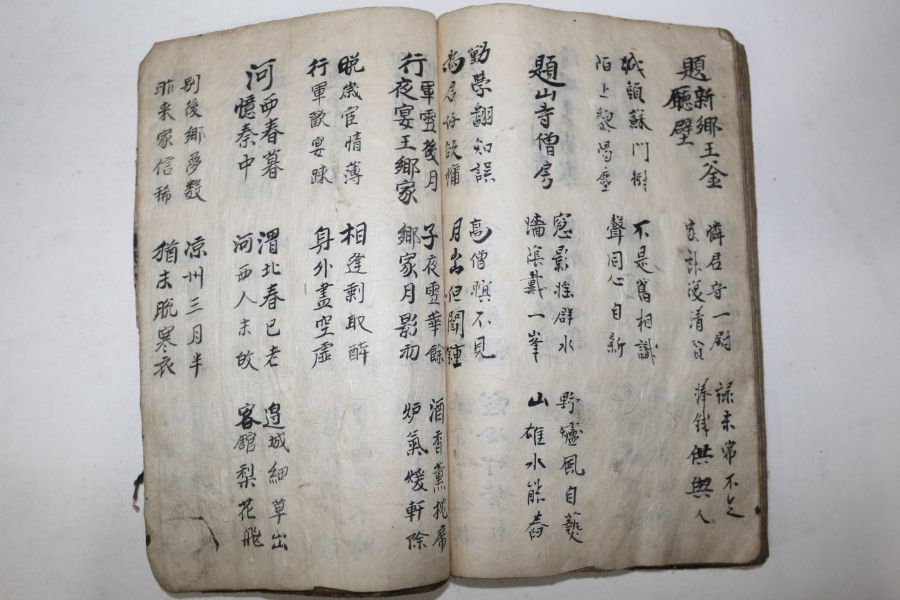 題新鄉王釜廳壁
憐君守一尉
家計復清貧
祿未常不足
俸錢供與人
城頭蘇門樹
陌上黎陽塵
不是舊相識
聲同心自新
題山寺僧房
窓影搖群水
墻陰戴一峯
野爐風自爇
山雄水能舂
勤學翻知誤
為官好欲慵
高僧暝不見
月出但聞鍾
行軍雪後月夜宴王鄉家
子夜雪華餘
鄉家月影初
酒香薰枕席
炉氣煖軒除
脫歲宦情薄
行軍歡宴踈
相逢剩取醉
身外盡空虛
河西春暮憶秦中
渭北春已老
河西人未故
邉城細草出
客館梨花飛
別後鄉夢數
昨來家信稀
凉州三月半
猶未脫寒衣